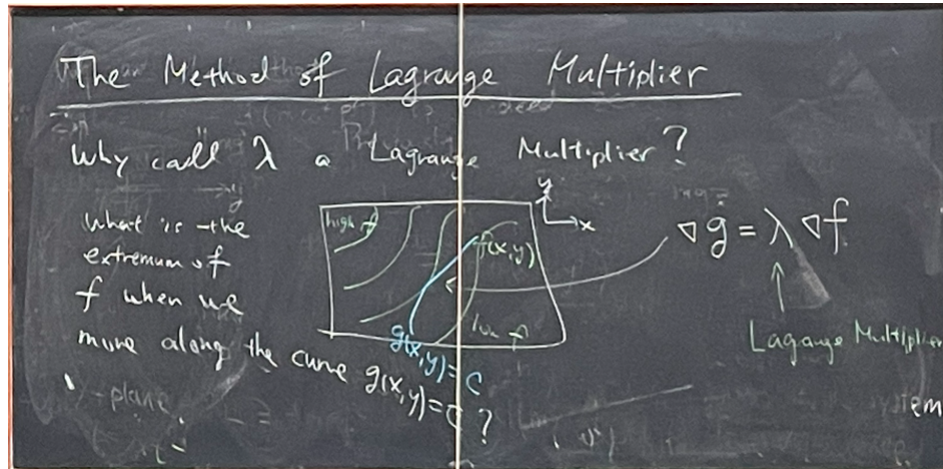 The Method of Lagrange Multiplier
Why call λ a Lagrange Multiplier?
What is the
extremum of
f when we
move along the curve g(x,y)=C?
high f
f(x,y)
low f
g(x,y)=C
y
x
∇g = λ∇f
Lagange Multiplier
-plane